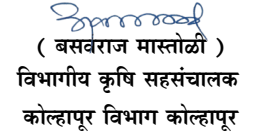 ( बसवराज मास्तोळी )
विभागीय कृषि सहसंचालक
कोल्हापूर विभाग कोल्हापूर